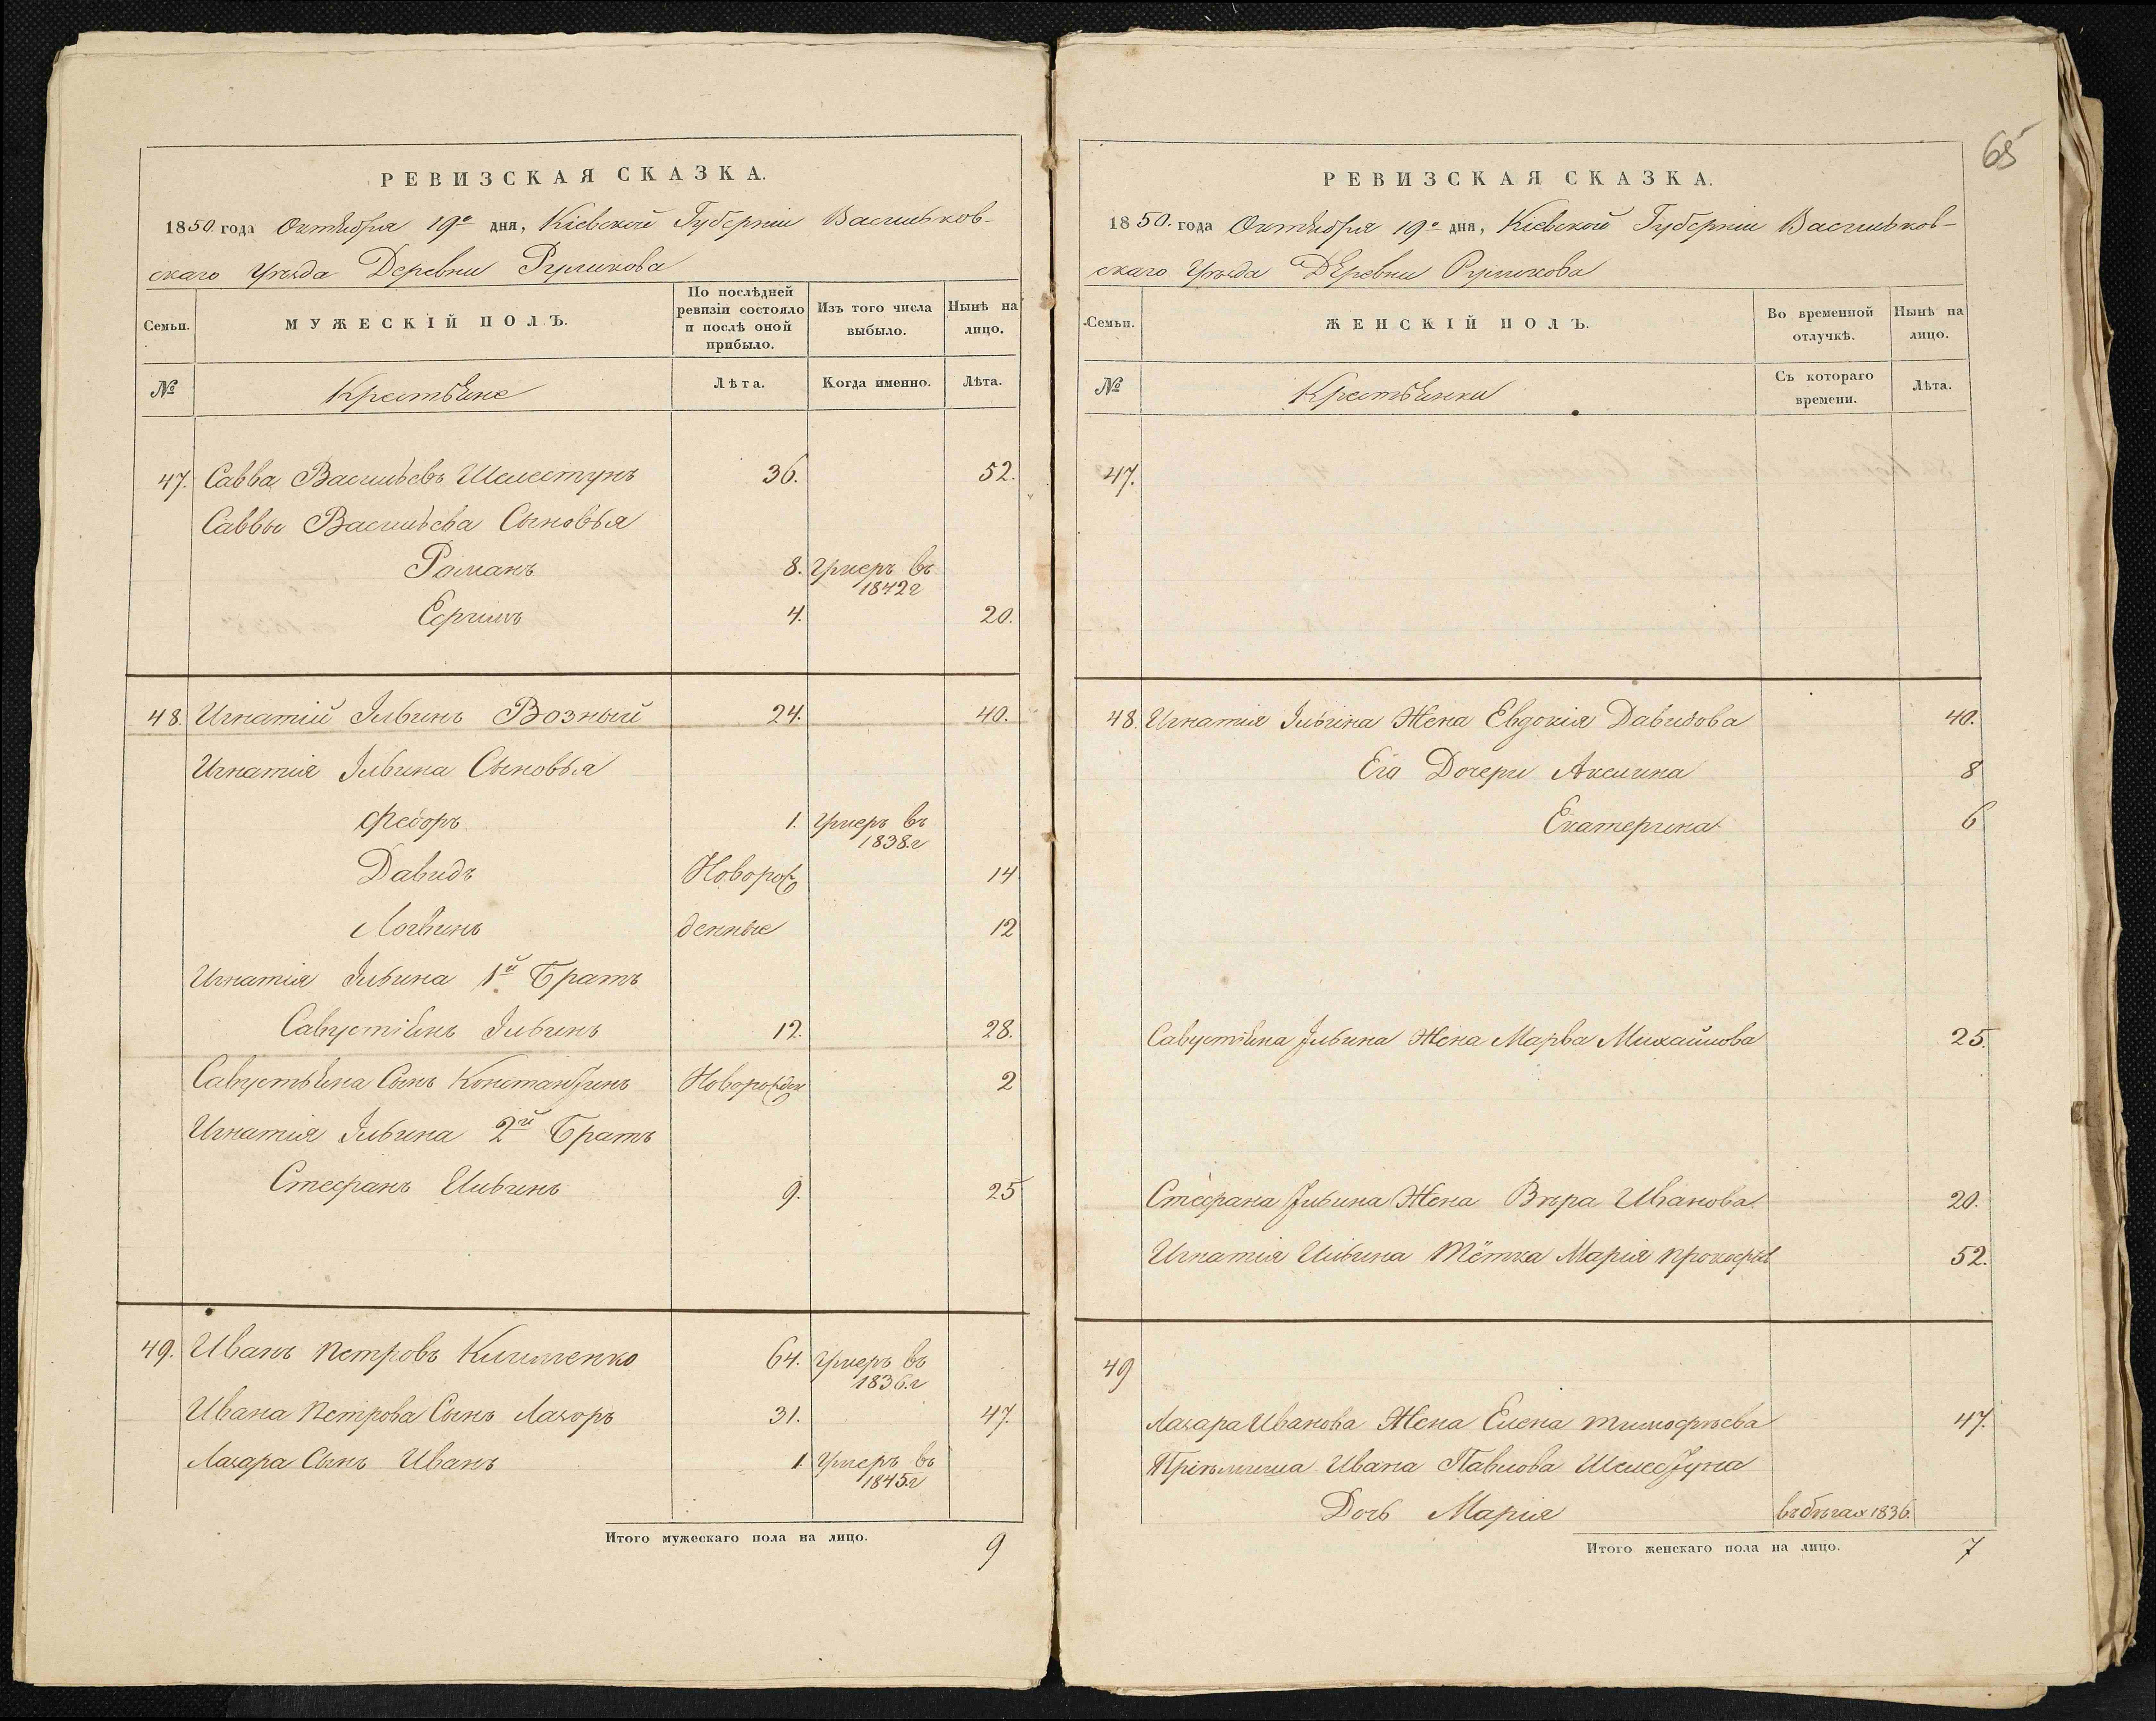 РЕВИЗСКАЯ СКАЗКА.
1850. года Октября 19го дня, Кіевской Губерніи Васильков-
скаго Уѣзда Деревни Руликова
Семьи. МУЖЕСКІЙ ПОЛЪ. По послѣдней ревизіи состояло и послѣ оной прибыло. Изъ того числа выбыло. Нынѣ на лицо.
№ Крестьяне Лѣта. Когда именно. Лѣта.
47. Савва Васильевъ Шелестунъ 36. 52.
Саввы Васильева Сыновья
Романъ 8. Умеръ въ 1842г
4. 20.
48. Игнатій Ильинъ Возный 24. 40.
Игнатія Ильина Сыновья
Федоръ 1. Умеръ въ 1838.г
Давидъ Новорож 14
Логвинъ денные 12
Игнатія Ильина 1й Братъ
Савустіянъ Ильинъ 12. 28.
Савустьяна Сынъ Константинъ Новорожден 2
Игнатія Ильина 2й Братъ
Стефанъ Ильинъ 9. 25
49. Иванъ Петровъ 64. Умеръ въ 1836.г
Ивана Петрова Сынъ Лазоръ 31. 47.
Лазара Сынъ Иванъ 1. Умеръ въ 1845г
Итого мужескаго пола на лицо. 9
65
РЕВИЗСКАЯ СКАЗКА.
1850. года Октября 19го дня, Кіевской Губерніи Васильков-
скаго Уѣзда Деревни Руликова
Семьи. ЖЕНСКІЙ ПОЛЪ. Во временной отлучкѣ. Нынѣ на лицо.
№ Крестьянки Съ котораго времени. Лѣта.
47.
48. Игнатія Ильина Жена Евдокія Давидова 40.
Его Дочери Акилина 8
Екатерина 6
Савустіяна Ильина Жена Марва Михайлова 25.
Стефана Ильина Жена Вѣра Иванова. 20.
Игнатія Ильина Тётка Марія Прокофьев 52.
49
Лазара Иванова Жена Елена Тимофѣева 47.
Ивана Павлова Шелестуна
Дочь Марія въ бѣгах 1836.
Итого женскаго пола на лицо. 7